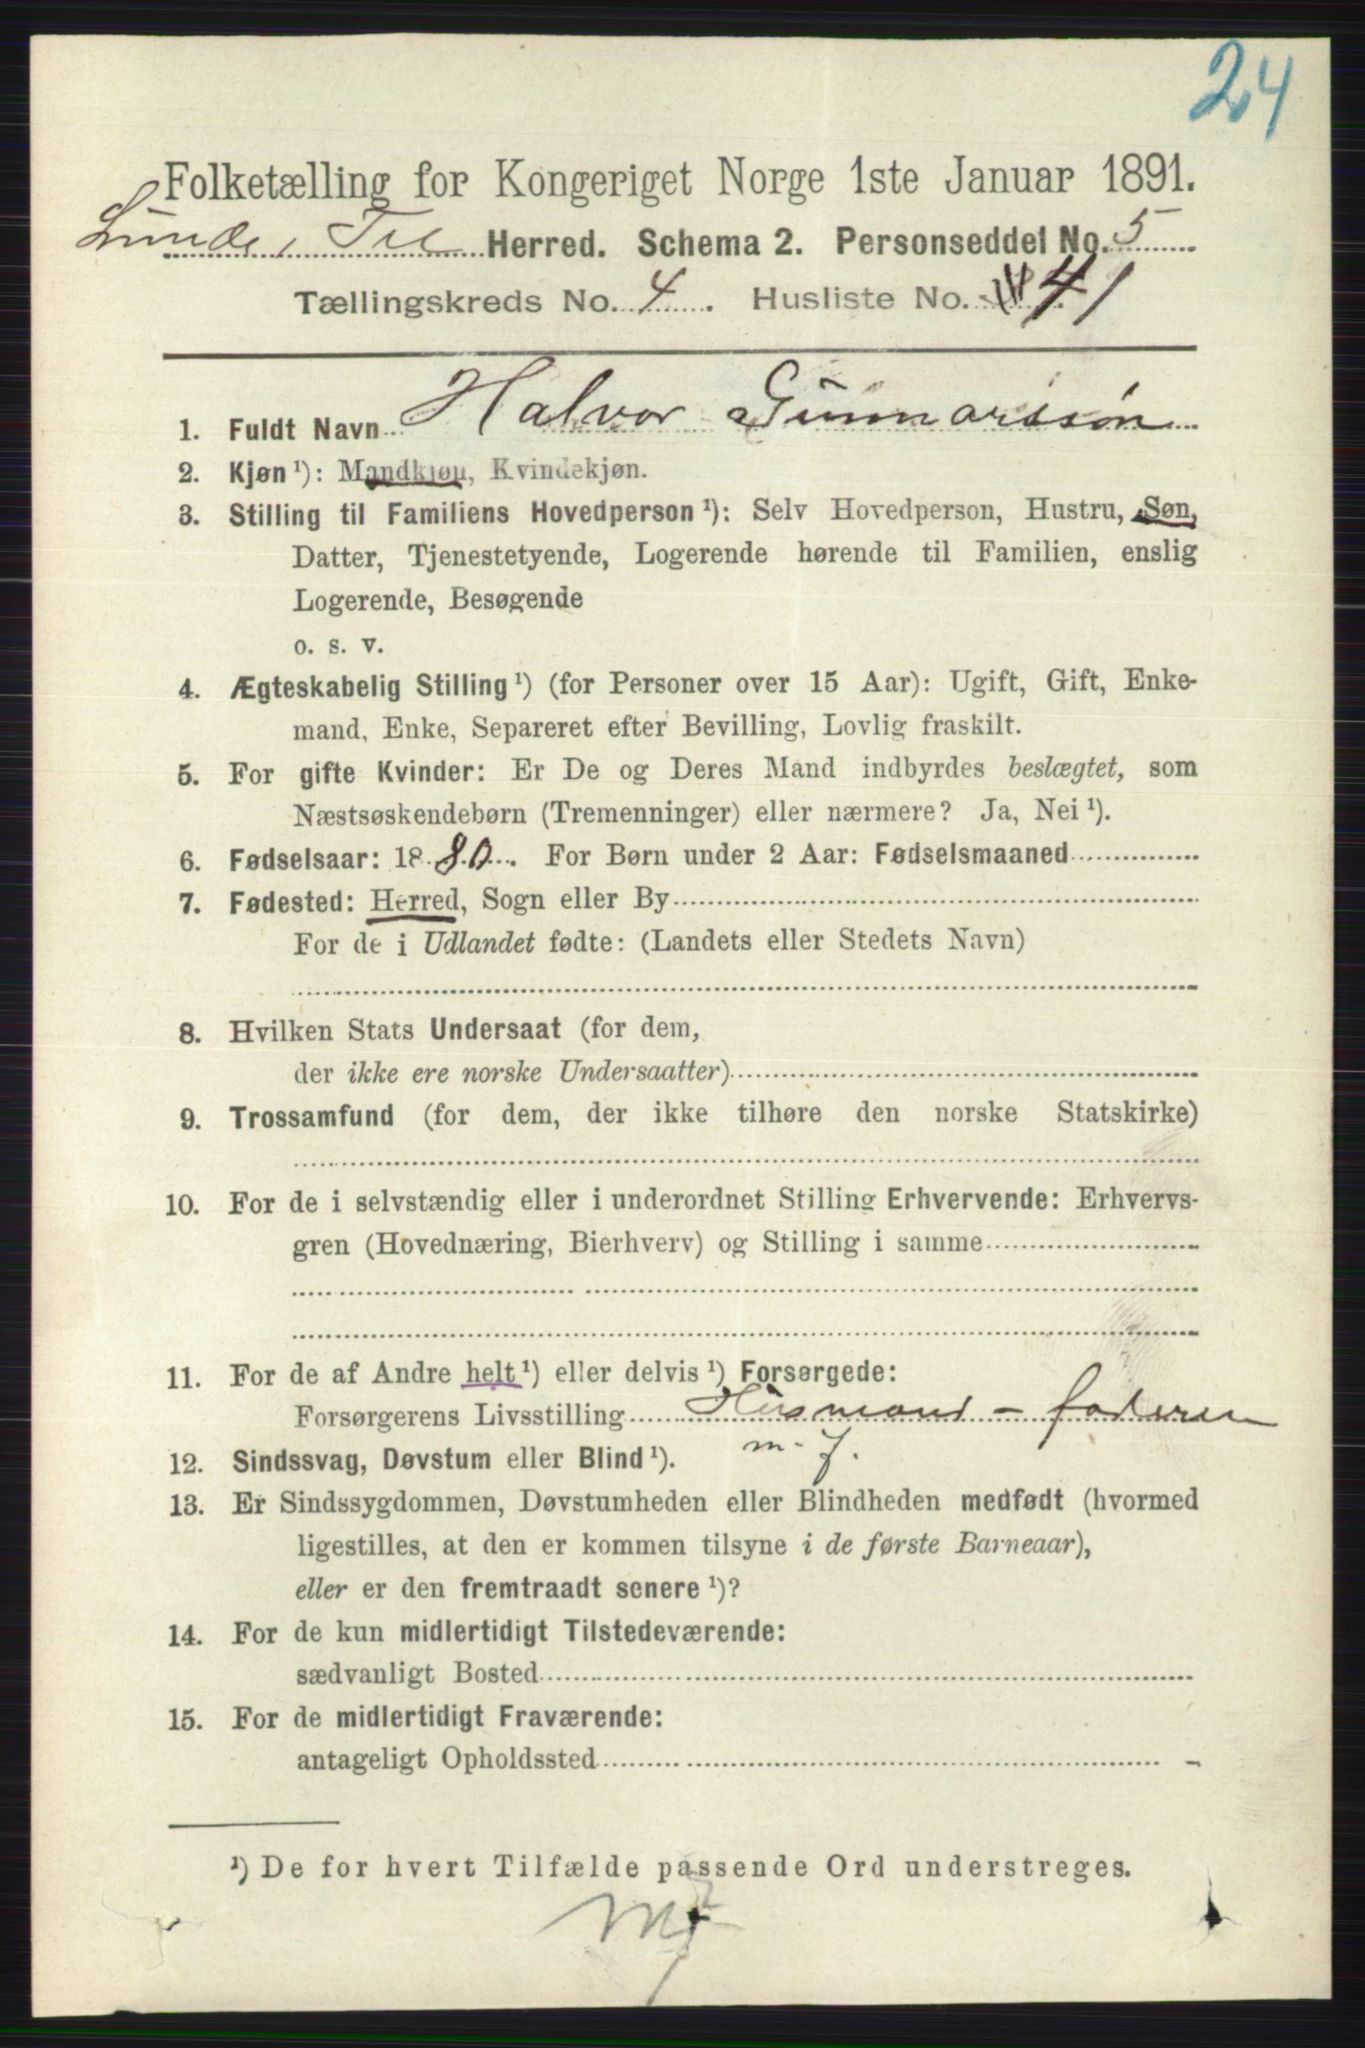 24
Folketælling for Kongeriget Norge 1ste Januar 1891.
Lunde, Tel Herred. Schema 2. Personseddel No. 5
Tællingskreds No. 4. Husliste No. 41
1. Fuldt Navn Halvor Gunnarssøn
2. Kjøn¹): Mandkjøn, Kvindekjøn.
3. Stilling til Familiens Hovedperson¹): Selv Hovedperson, Hustru, Søn,
Datter, Tjenestetyende, Logerende hørende til Familien, enslig
Logerende, Besøgende
o. s. v.
4. Ægteskabelig Stilling¹) (for Personer over 15 Aar): Ugift, Gift, Enke-
mand, Enke, Separeret efter Bevilling, Lovlig fraskilt.
5. For gifte Kvinder: Er De og Deres Mand indbyrdes beslægtet, som
Næstsøskendebørn (Tremenninger) eller nærmere? Ja, Nei¹).
6. Fødselsaar: 1880. For Børn under 2 Aar: Fødselsmaaned
7. Fødested: Herred, Sogn eller By
For de i Udlandet fødte: (Landets eller Stedets Navn)
8. Hvilken Stats Undersaat (for dem,
der ikke ere norske Undersaatter)
9. Trossamfund (for dem, der ikke tilhøre den norske Statskirke)
10. For de i selvstændig eller i underordnet Stilling Erhvervende: Erhvervs-
gren (Hovednæring, Bierhverv) og Stilling i samme
11. For de af Andre helt¹) eller delvis¹) Forsørgede:
Forsørgerens Livsstilling Husmand - faderen
m. j.
12. Sindssvag, Døvstum eller Blind¹).
13. Er Sindssygdommen, Døvstumheden eller Blindheden medfødt (hvormed
ligestilles, at den er kommen tilsyne i de første Barneaar),
eller er den fremtraadt senere¹)?
14. For de kun midlertidigt Tilstedeværende:
sædvanligt Bosted
15. For de midlertidigt Fraværende:
antageligt Opholdssted -
¹) De for hvert Tilfælde passende Ord understreges.